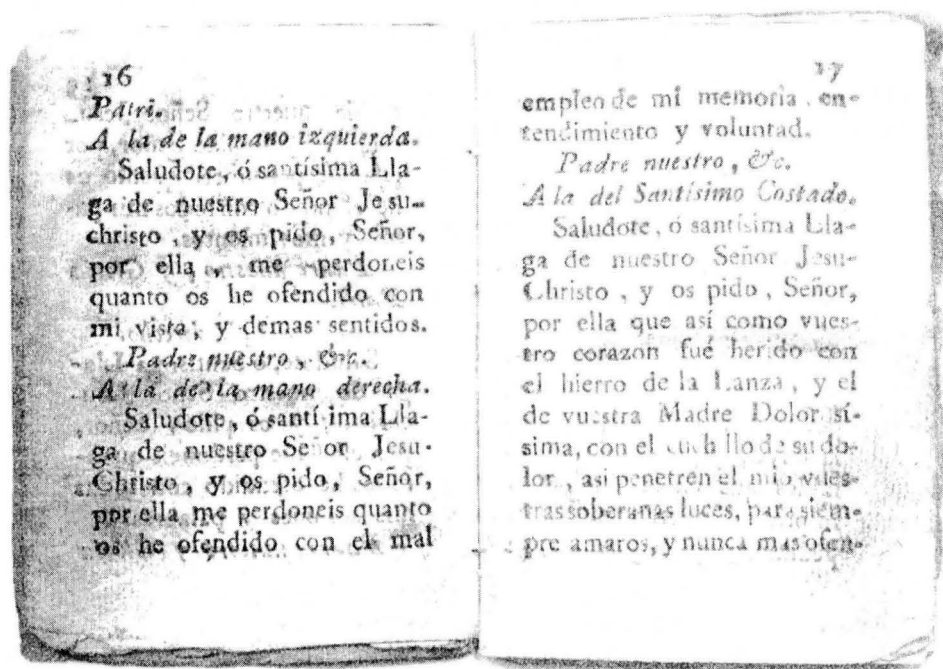 16
Patri.
A la de la mano izquierda.
Saludote, ó santísima Lla-
ga de nuestro Señor Jesu-
christo, y os pido, Señor,
por ella, me perdoneis
quanto os he ofendido con
mi vista, y demas sentidos.
Padre nuestro, &c.
A la de la mano derecha.
Saludote, ó santí ima Lla-
ga de nuestro Se or Jesu-
Christo, y os pido, Señor,
por ella me perdoneis quanto
os he ofendido con el mal
17
empleo de mi memoria, en-
tendimiento y voluntad.
Padre nuestro, &c.
A la del Santísimo Costado.
Saludote, ó santísima Lla-
ga de nuestro Señor Jesu-
Christo, y os pido, Señor,
por ella que así como vues-
tro corazon fué herido con
el hierro de la Lanza, y el
de vuestra Madre Dolor sí-
sima, con el cuch llo de su do-
lor, asi penetren el mio vues-
tras soberanas luces, para siem-
pre amaros, y nunca mas ofen-